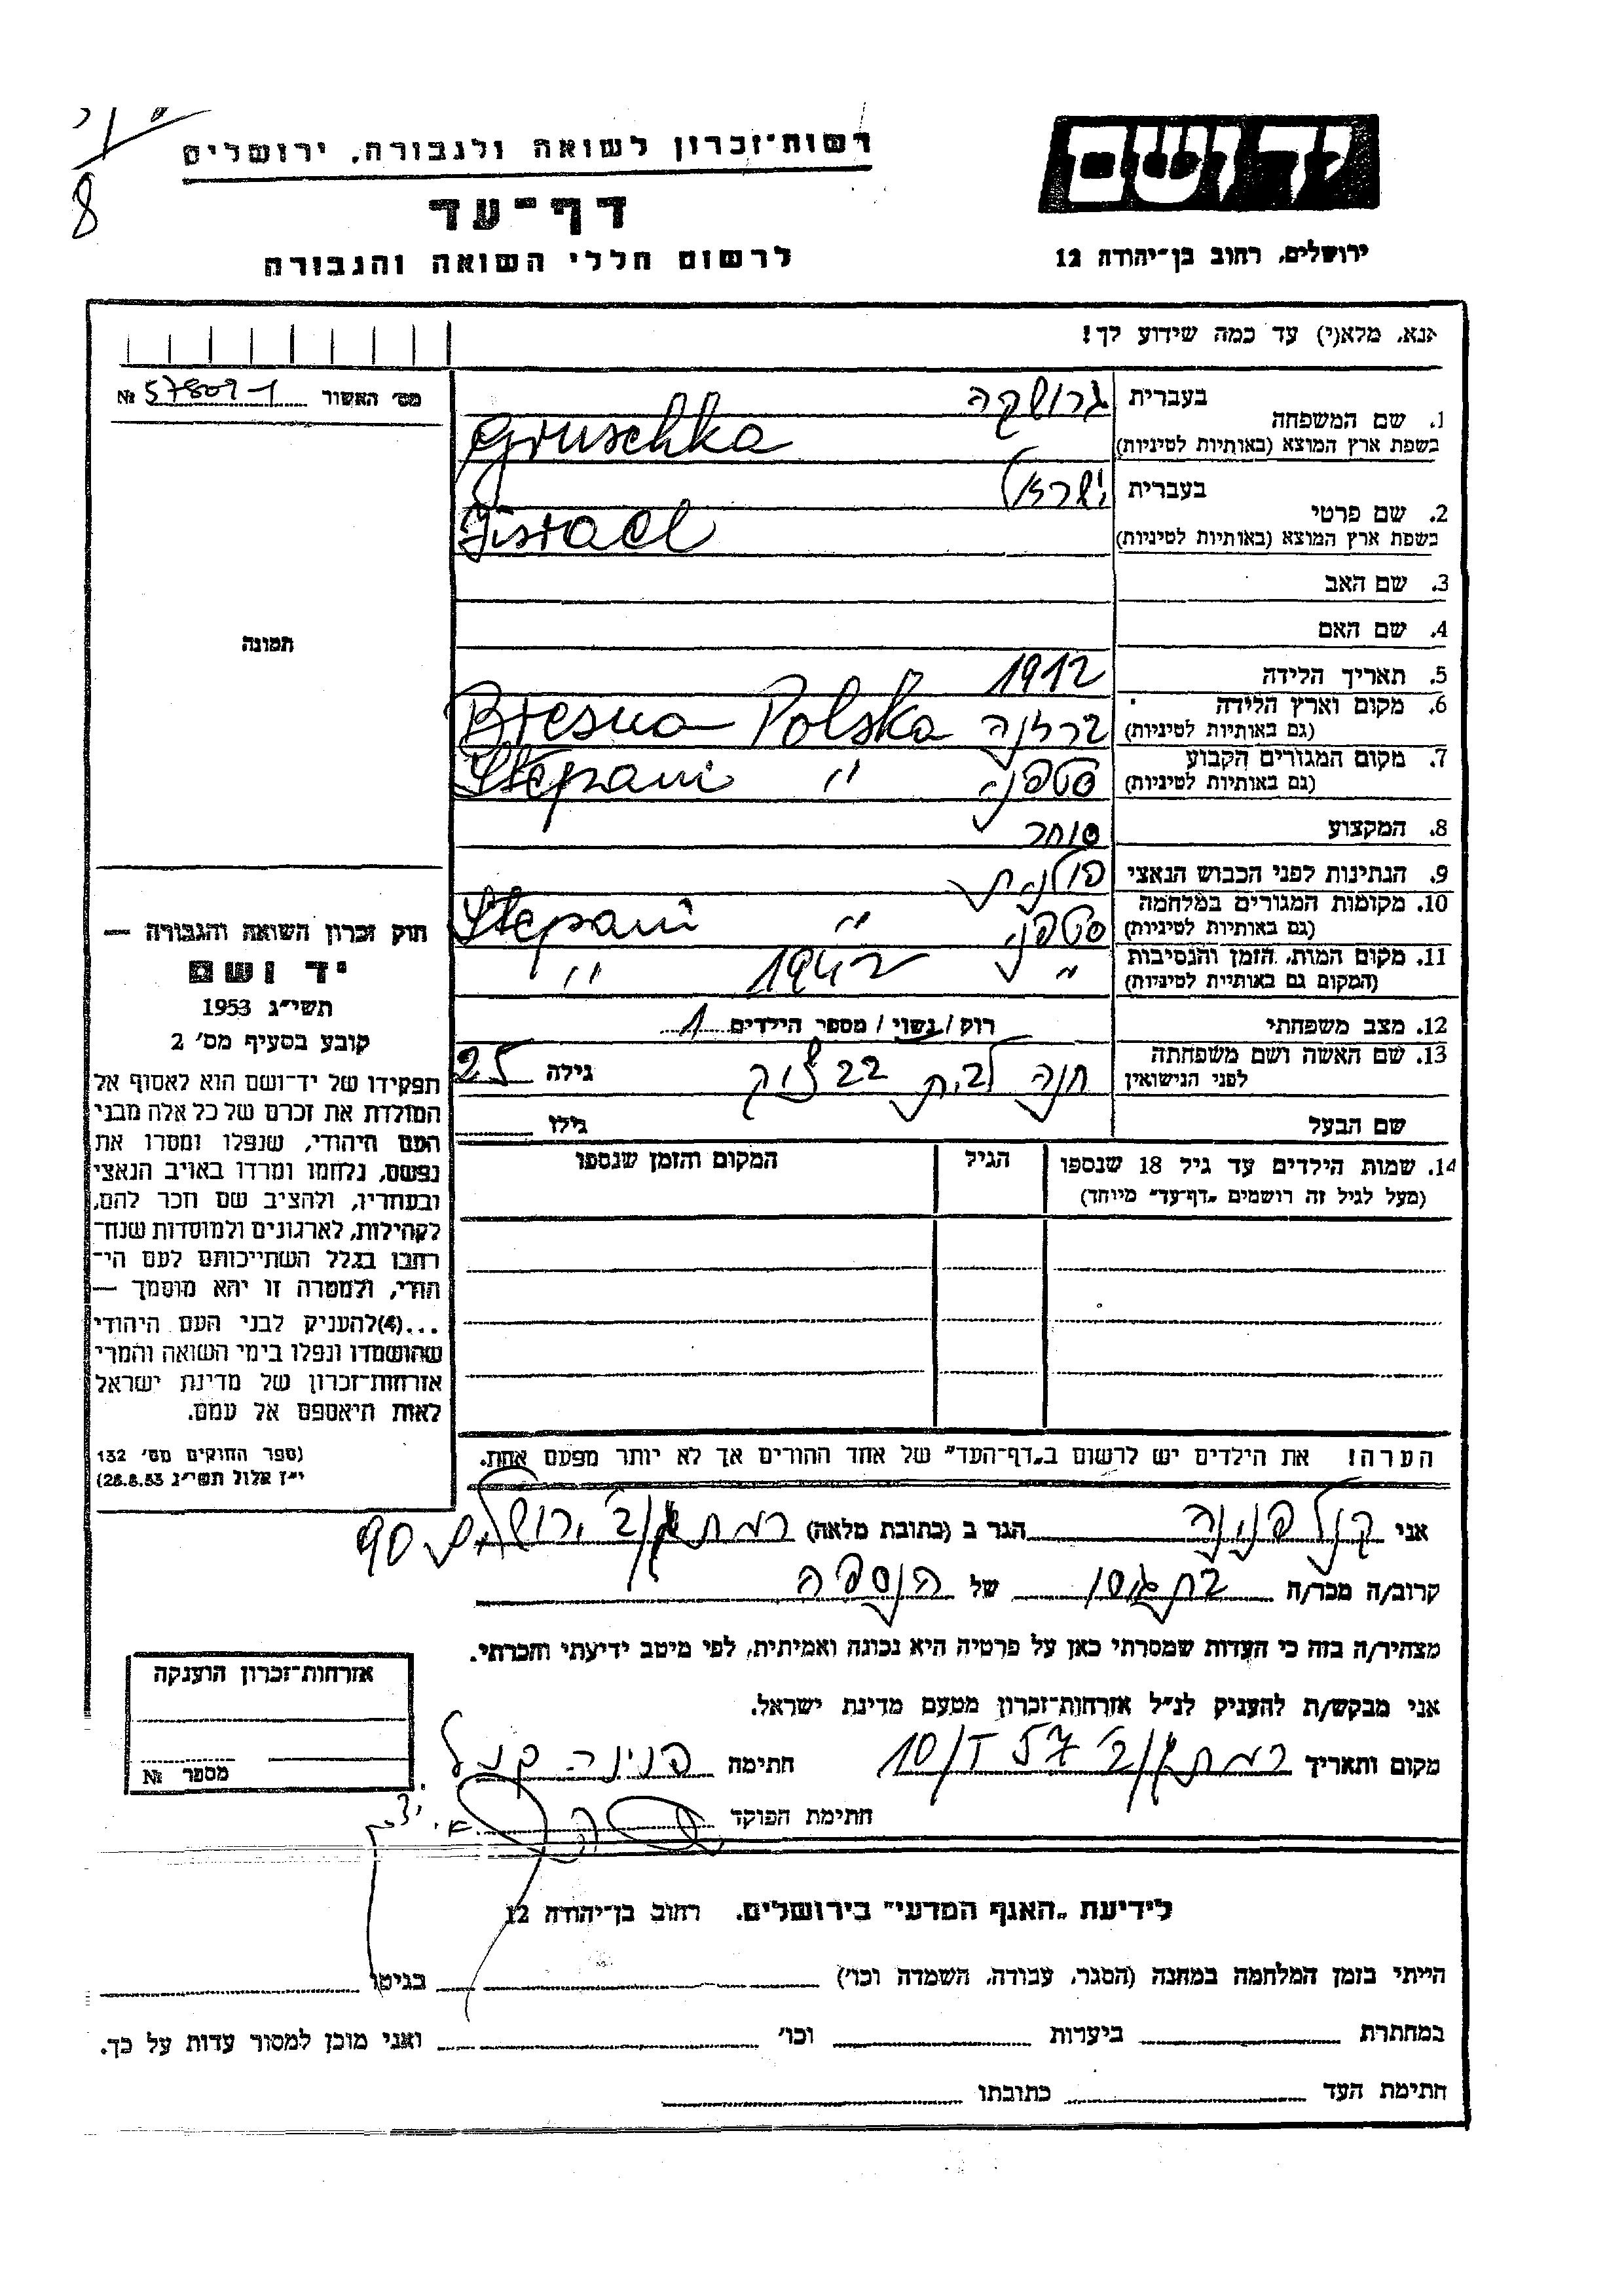 רשות־זכרון לשואה ולגבורה, ירושלים
8
דף־עד
לרשום חללי השואה והגבורה
יד ושם
ירושלים, רחוב בן־יהודה 12
אנא, מלא(י) עד כמה שידוע לך!
מס' האשור № 57809-1
תמונה
1. שם המשפחה בעברית גרושקה
בשפת ארץ המוצא (באותיות לטיניות) Gruschka
2. שם פרטי בעברית ישראל
בשפת ארץ המוצא (באותיות לטיניות) Jisrael
3. שם האב
4. שם האם
5. תאריך הלידה 1912
6. מקום וארץ הלידה ברזנה Bresna Polska
(גם באותיות לטיניות)
7. מקום המגורים הקבוע סטפני " Stepani
(גם באותיות לטיניות)
8. המקצוע סוחר
9. הנתינות לפני הכבוש הנאצי פולנית
10. מקומות המגורים במלחמה סטפני " Stepani
(גם באותיות לטיניות)
11. מקום המות, הזמן והנסיבות " 1942 "
(המקום גם באותיות לטיניות)
12. מצב משפחתי רוק / נשוי / מספר הילדים 1
13. שם האשה ושם משפחתה חנה לבית גילה 25
לפני הנישואין
שם הבעל גילו
14. שמות הילדים עד גיל 18 שנספו הגיל המקום והזמן שנספו
(מעל לגיל זה רושמים „דף־עד" מיוחד)
חוק זכרון השואה והגבורה —
יד ושם
תשי"ג 1953
קובע בסעיף מס' 2
תפקידו של יד־ושם הוא לאסוף אל
המולדת את זכרם של כל אלה מבני
העם היהודי, שנפלו ומסרו את
נפשם, נלחמו ומרדו באויב הנאצי
ובעוזריו, ולהציב שם וזכר להם,
לקהילות, לארגונים ולמוסדות שנח־
רבו בגלל השתייכותם לעם הי־
הודי, ולמטרה זו יהא מוסמך —
...(4)להעניק לבני העם היהודי
שהושמדו ונפלו בימי השואה והמרי
אזרחות־זכרון של מדינת ישראל
לאות היאספם אל עמם.
(ספר החוקים מס' 132
י"ז אלול תשי"ג 28.8.53)
הערה! את הילדים יש לרשום ב„דף־העד" של אחד ההורים אך לא יותר מפעם אחת.
אני קנל פנינה הגר ב (כתובת מלאה) רמת אביב ירושלים 90
קרוב/ה מכר/ה בת גיסן של הנספה
מצהיר/ה בזה כי העדות שמסרתי כאן על פרטיה היא נכונה ואמיתית, לפי מיטב ידיעתי והכרתי.
אני מבקש/ת להעניק לנ"ל אזרחות־זכרון מטעם מדינת ישראל.
מקום ותאריך רמת אביב חתימה פנינה קנל
חתימת הפוקד
אזרחות־זכרון הוענקה
מספר №
לידיעת „האגף המדעי" בירושלים. רחוב בן־יהודה 12
הייתי בזמן המלחמה במחנה (הסגר, עבודה, השמדה וכו') בגיטו
במחתרת ביערות וכו' ואני מוכן למסור עדות על כך.
חתימת העד כתובתו